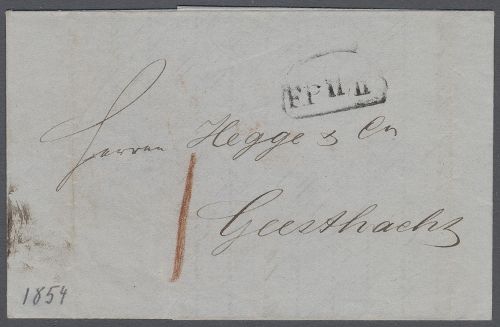 F.P II. II
Herren Hegge & Co
1
Geesthacht
1854